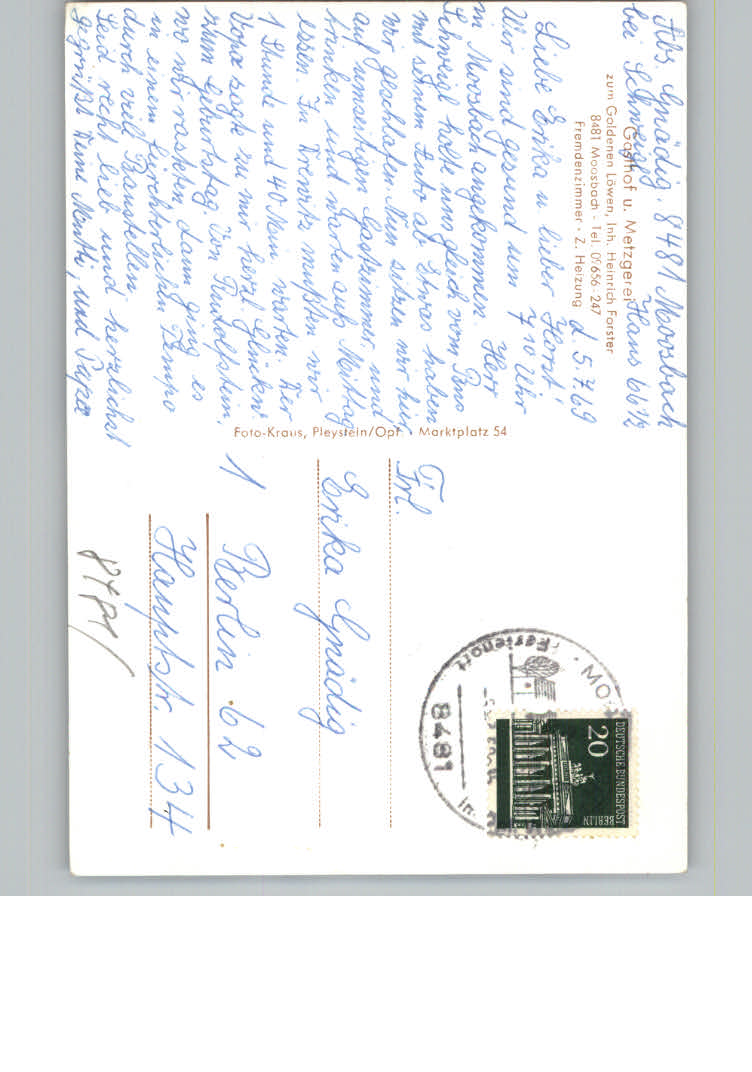 Abs. Gnädig. 8481 Moosbach
bei Schmeigl. Haus 66 1/2
Gasthof u. Metzgerei
zum Goldenen Löwen, Inh. Heinrich Forster
8481 Moosbach - Tel. 09656-247
Fremdenzimmer - Z. Heizung
d. 5.7.69
Liebe Erika u. lieber Horst!
Wir sind gesund um 7 10 Uhr
in Moosbach angekommen. Herr
Schmeigl holte uns gleich vom Bus
mit seinem Auto ab. Etwas haben
wir geschlafen. Nun sitzen wir hier
auf umseitigen Gastzimmer, und
trinken und werden auch Mittag
essen. In mußten wir
1 Stunde und 40 Min warten. Hier
Vopo sagte zu mir herzl. Glückw
zum Geburtstag. Von Rudolphstein,
wo wir rasteten. Dann ging es
in einem fürchterlichen Tempo
durch viel Baustellen
Seid recht lieb und herzlichst
gegrüßt Deine Mutti, und Papa
Foto-Kraus, Pleystein/Opf. - Marktplatz 54
Frl.
Erika Gnädig
1 Berlin 62
Hauptstr. 134
8481
MO
Ferienort
8481
20
DEUTSCHE BUNDESPOST
BERLIN